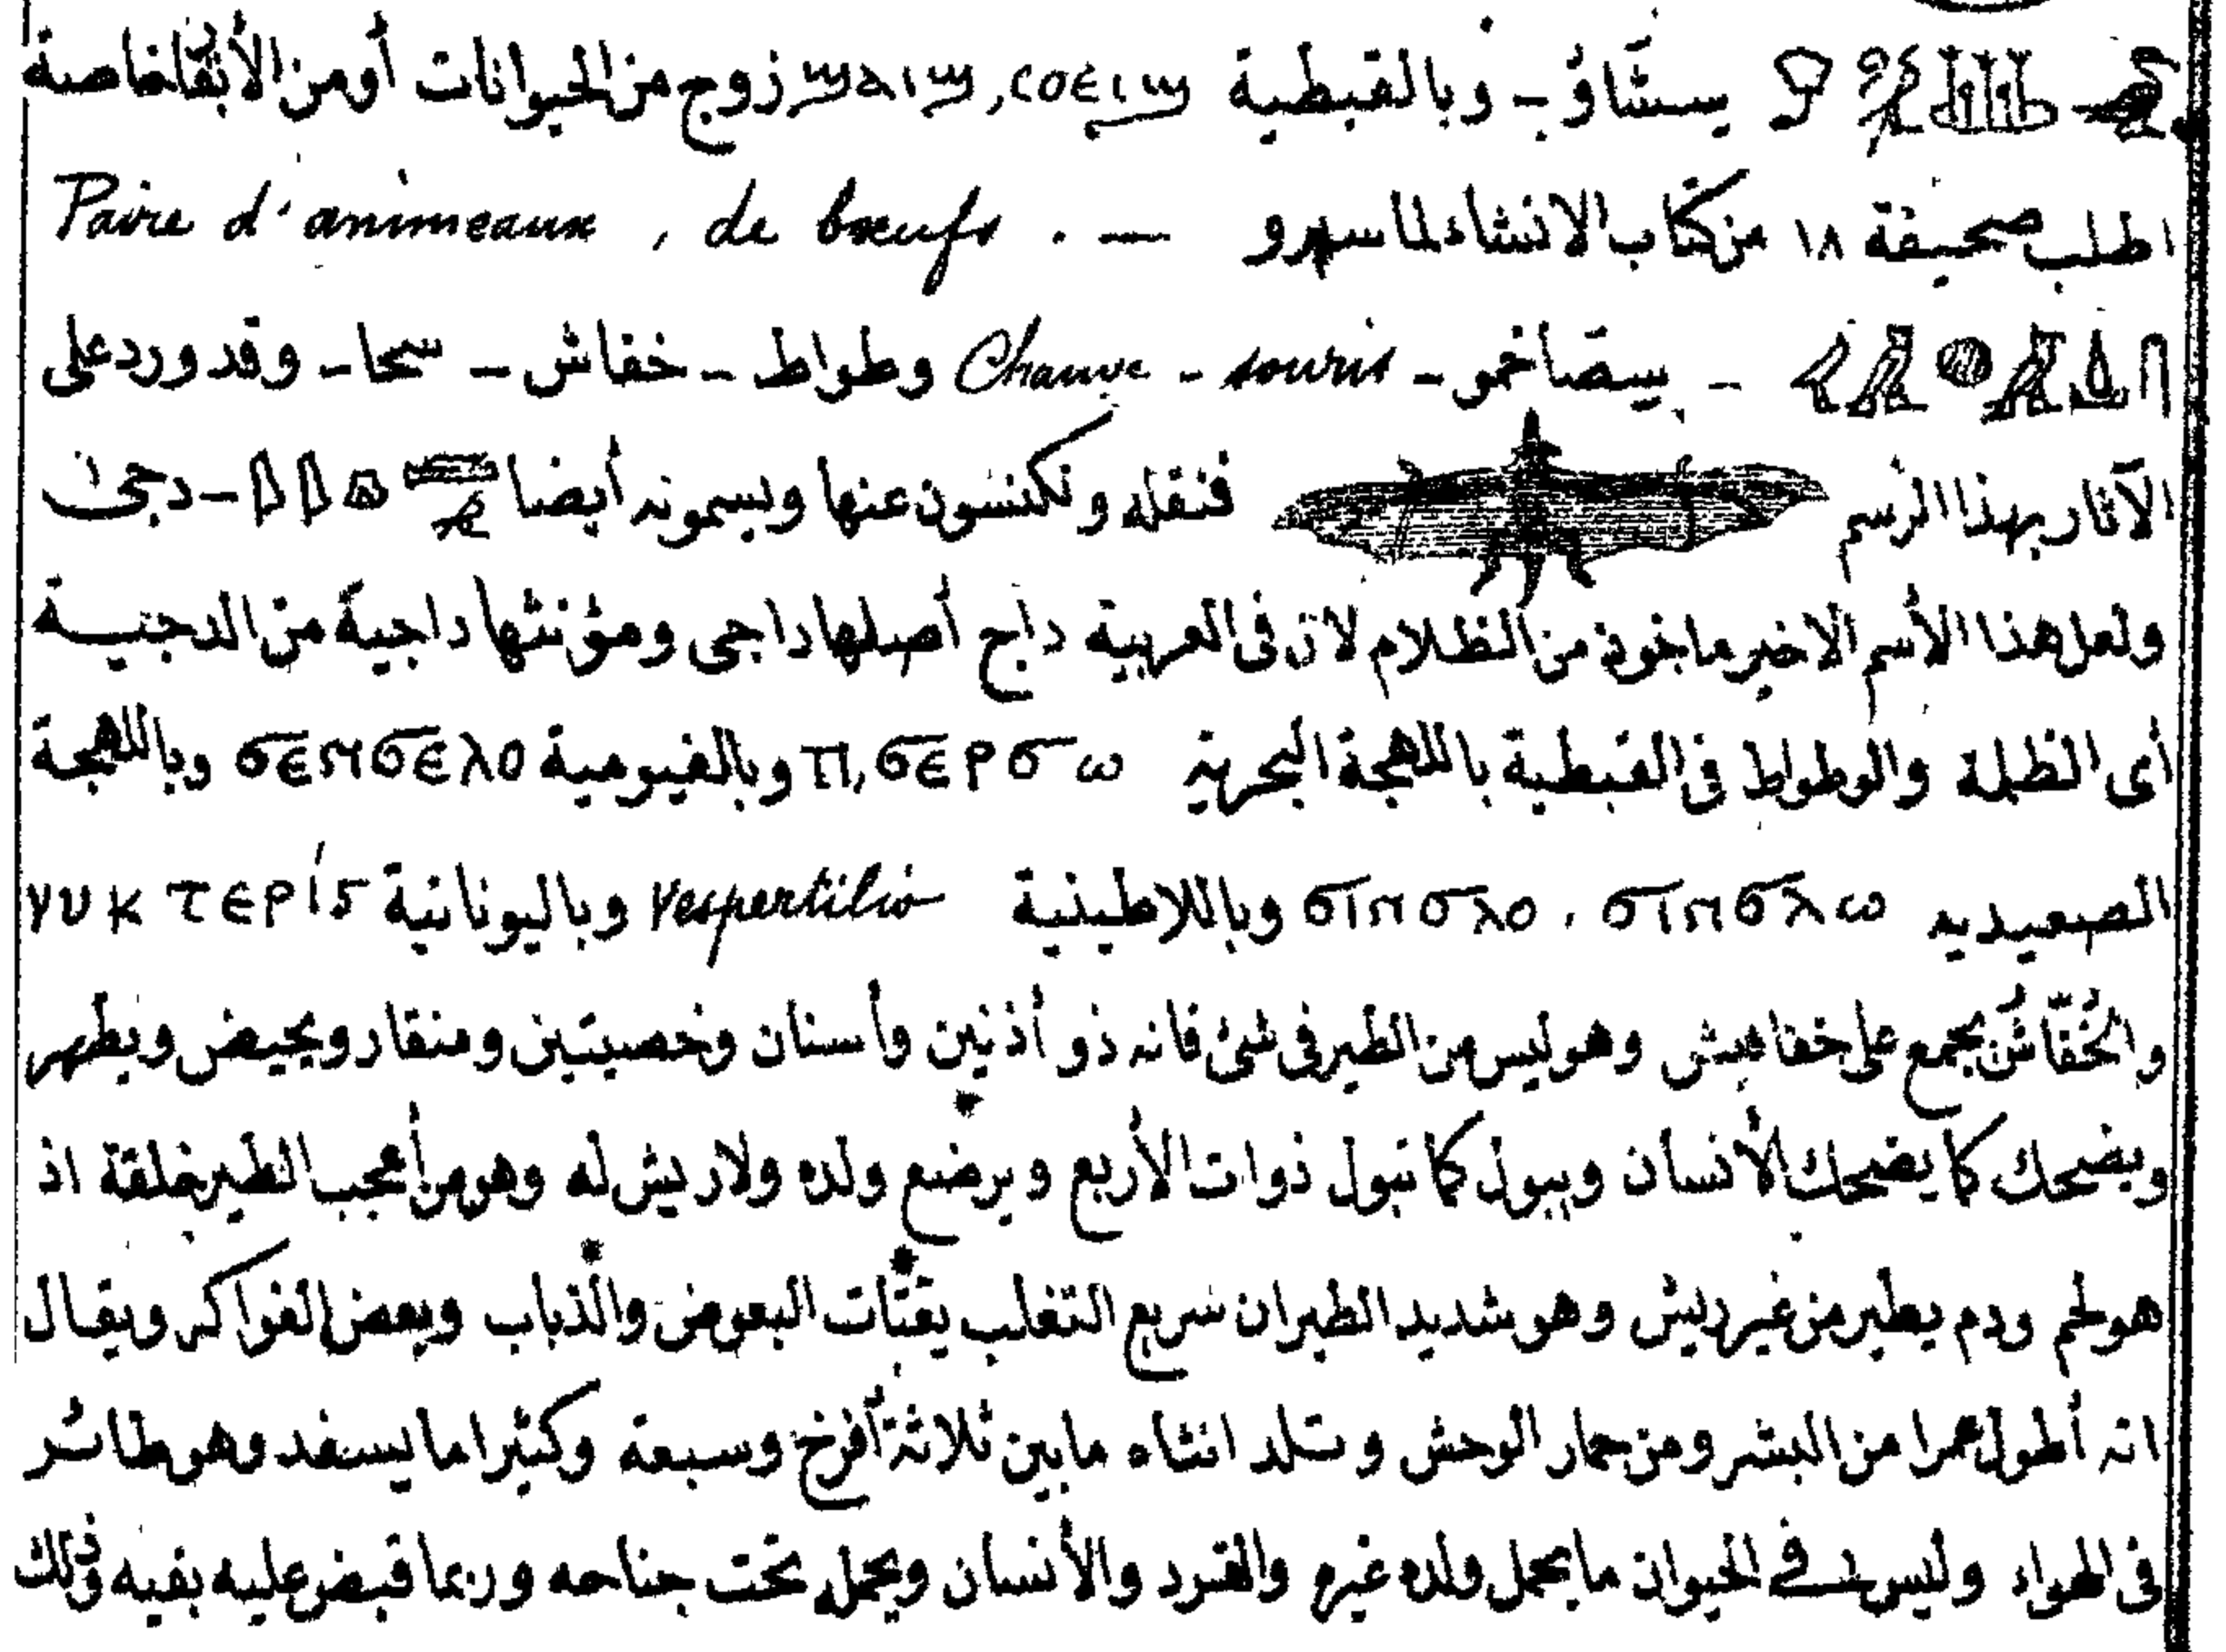 سشاؤ - وبالقبطية ϣⲁⲓϣ, ⲥⲟⲉⲓϣ زوج من الحيوانات أومن الأبقار خاصة
اطلب صحيفة ١٨ من كتاب الانشاء لماسپرو — . Paire d'animeaux , de bœufs
- سقاخمو - Chauve - souris وطواط - خفاش - سحا - وقدورد على
الآثار بهذا الرسم فنقله عنها ويسمونه أيضا - دجى
ولعل هذا الأسم الاخير ماخوذ من الظلام لان فى العربية داج أصلها داجى ومؤنثها داجية من الدجيــة
أى الظلمة والوطواط فى القبطية باللهجة البحرية ⲡⲓ,ϭⲉⲣϭⲱ وبالفيومية ϭⲉⲛϭⲉⲗⲟ وباللهجة
الصعيدية ϭⲓⲛϭⲗⲱ . ϭⲓⲛϭⲗⲟ وباللاطينية Vespertilio وباليونانية νυκτερίς
والخُفّاش يجمع على خفافيش وهو ليس من الطير فى شئ فانه ذو أذنين وأسنان وخصيتين ومنقار ويحيض ويطهر
ويضحك كما يضحك الأنسان ويبول كما تبول ذوات الأربع ويرضع ولده ولا ريش له وهو من أعجب الطير خلقة اذ
هو لحم ودم يطير من غير ريش وهو شديد الطيران سريع التقلب يقتات البعوض والذباب وبعض الفواكه ويقال
انه أطول عمرا من البشر ومن حمار الوحش وتلد انثاه ما بين ثلاثة أفرخ وسبعة وكثيرا ما يسفد وهو طائر
فى الهواء وليس فى الحيوان ما يحمل ولده غيره والقرد والأنسان ويحمله تحت جناحه وربما قبض عليه بفيه وذلك